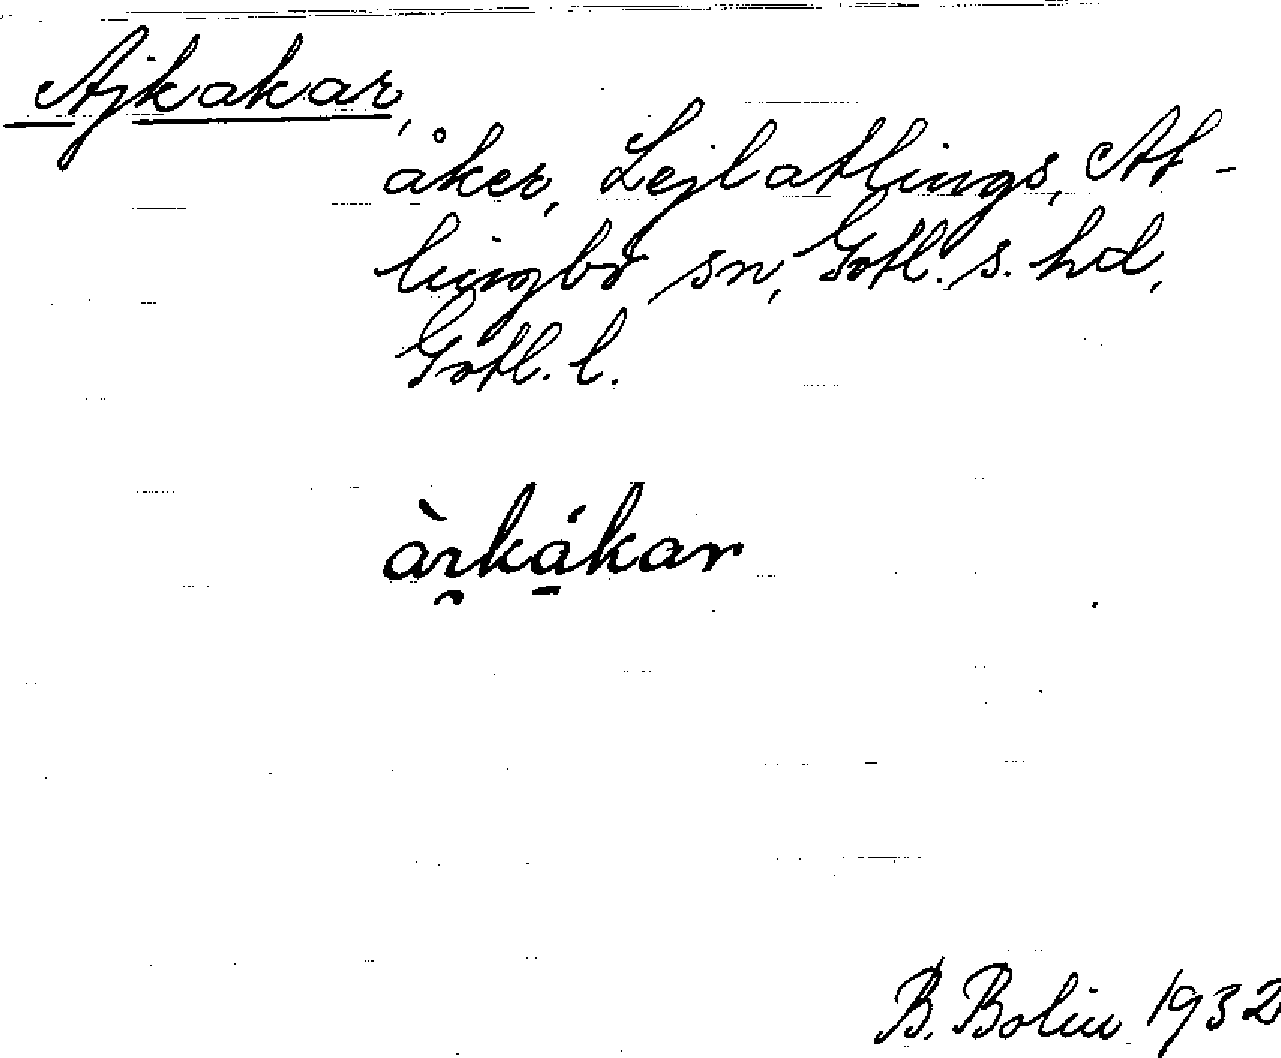 Ajkakar,
åker, Lejlatlings, At-
lingbo sn, Gotl. s. hd,
Gotl. l.
àı̯ká̱kar
B. Bolin 1932